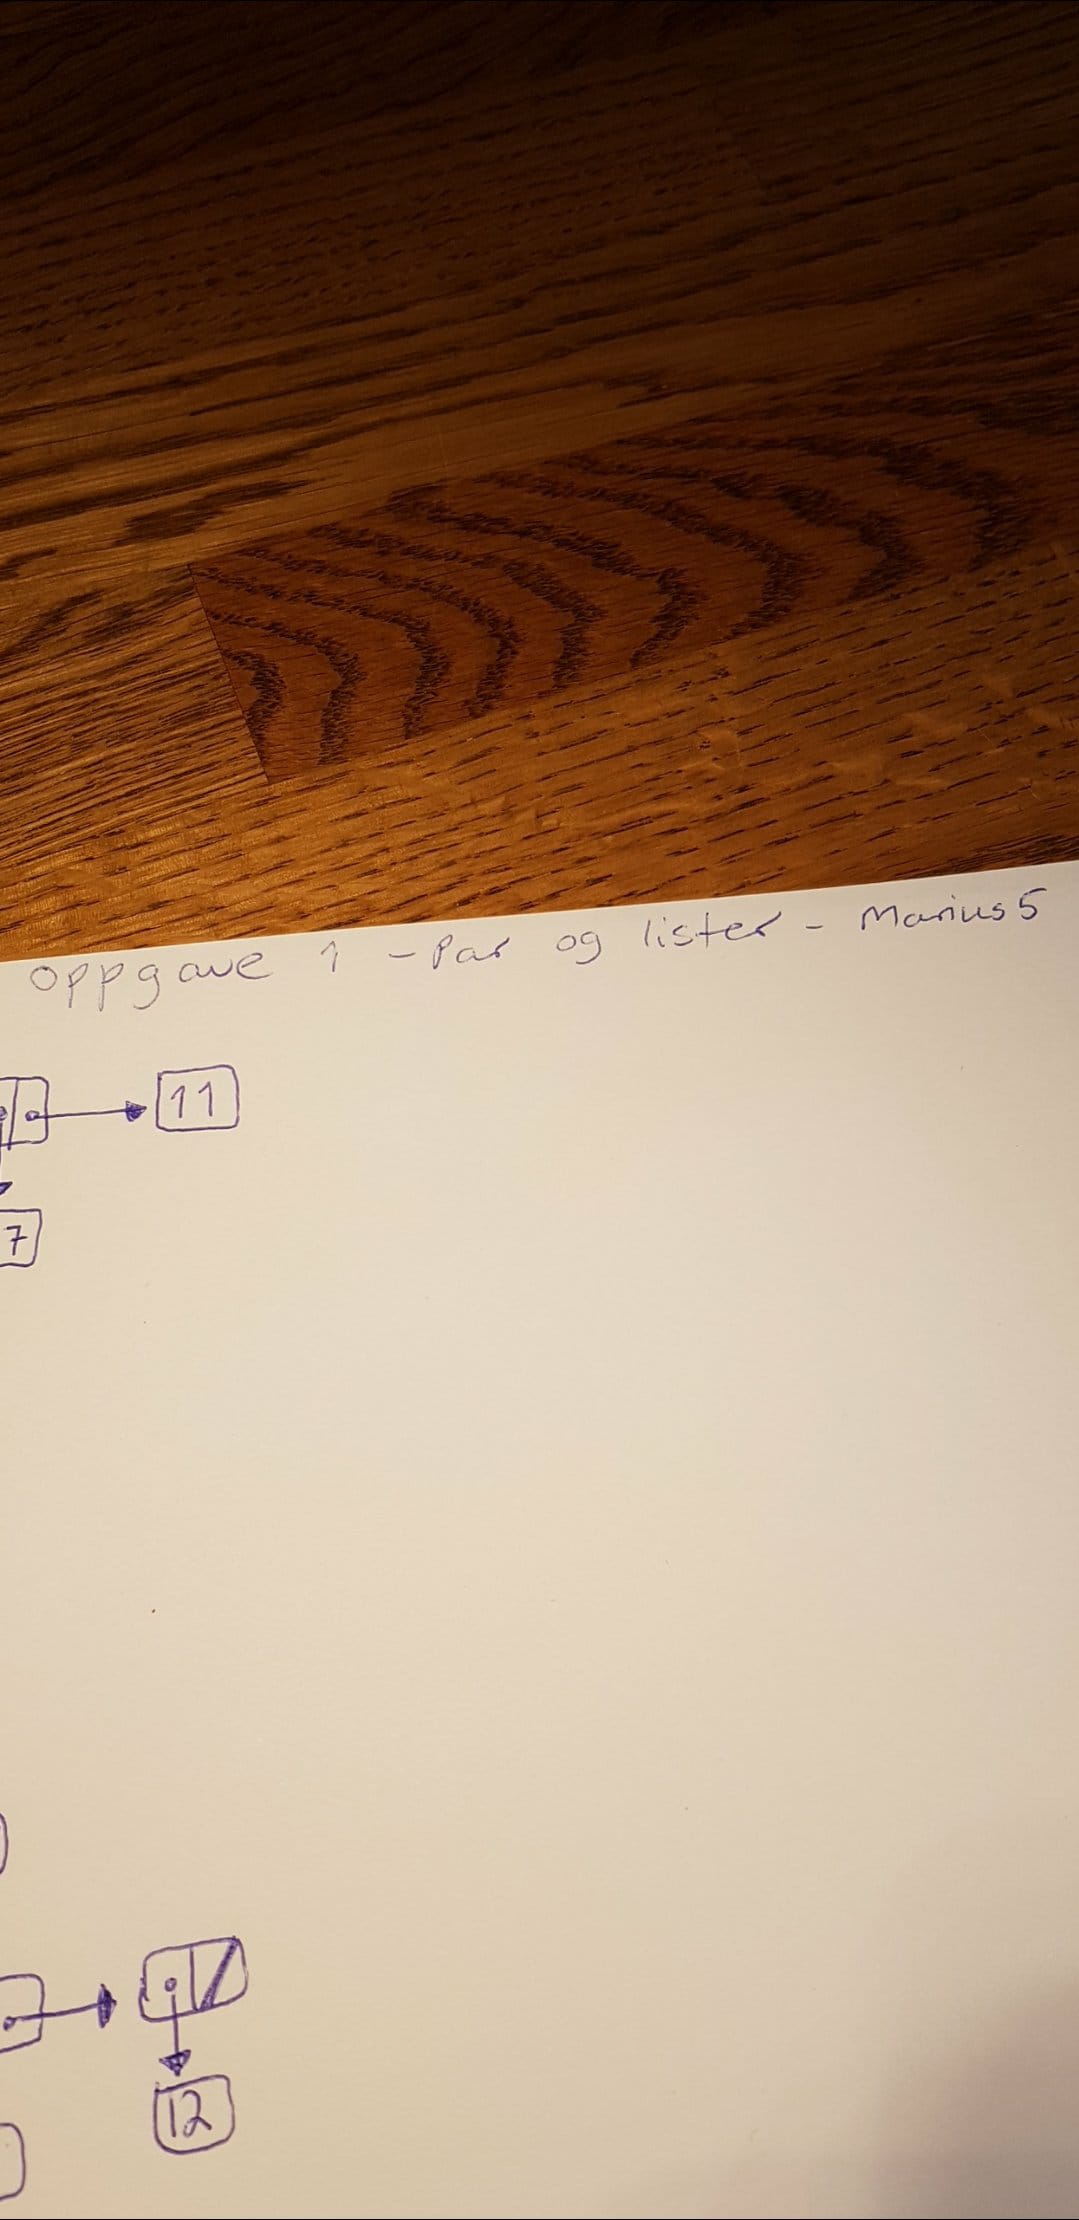 Oppgave 1 - Par og lister - Marius5
11
7
12